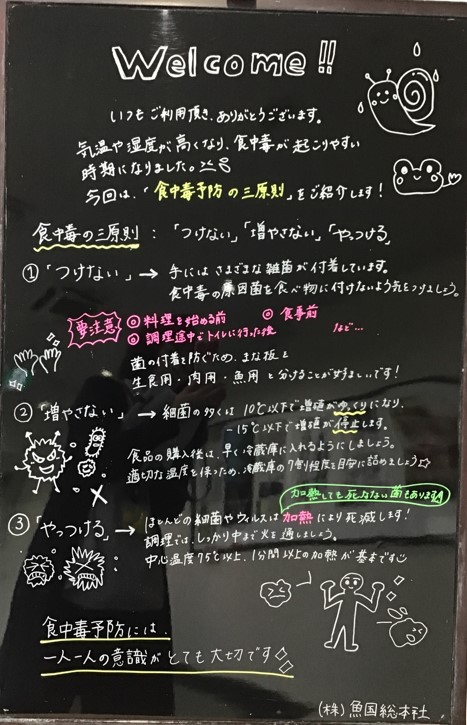 Welcome!!
いつもご利用頂き、ありがとうございます。
気温や湿度が高くなり、食中毒が起こりやすい
時期になりました。
今回は、「食中毒予防の三原則」をご紹介します!
食中毒の三原則:「つけない」「増やさない」「やっつける」
①「つけない」→ 手にはさまざまな雑菌が付着しています。
食中毒の原因菌を食べ物に付けないよう気をつけましょう。
要注意 ◎料理を始める前 ◎食事前
◎調理途中でトイレに行った後 など…
菌の付着を防ぐため、まな板も
生食用・肉用・魚用 と分けることが望ましいです!
②「増やさない」→ 細菌の多くは 10℃以下で増殖がゆっくりになり、
-15℃以下で増殖が停止します。
食品の購入後は、早く冷蔵庫に入れるようにしましょう。
適切な温度を保つため、冷蔵庫の7割程度を目安に詰めましょう☆
加熱しても死なない菌もあります
③「やっつける」→ ほとんどの細菌やウイルスは加熱により死滅します!
調理では、しっかり中まで火を通しましょう。
中心温度75℃以上、1分間以上の加熱が基本です
食中毒予防には、
一人一人の意識がとても大切です
(株)魚国総本社